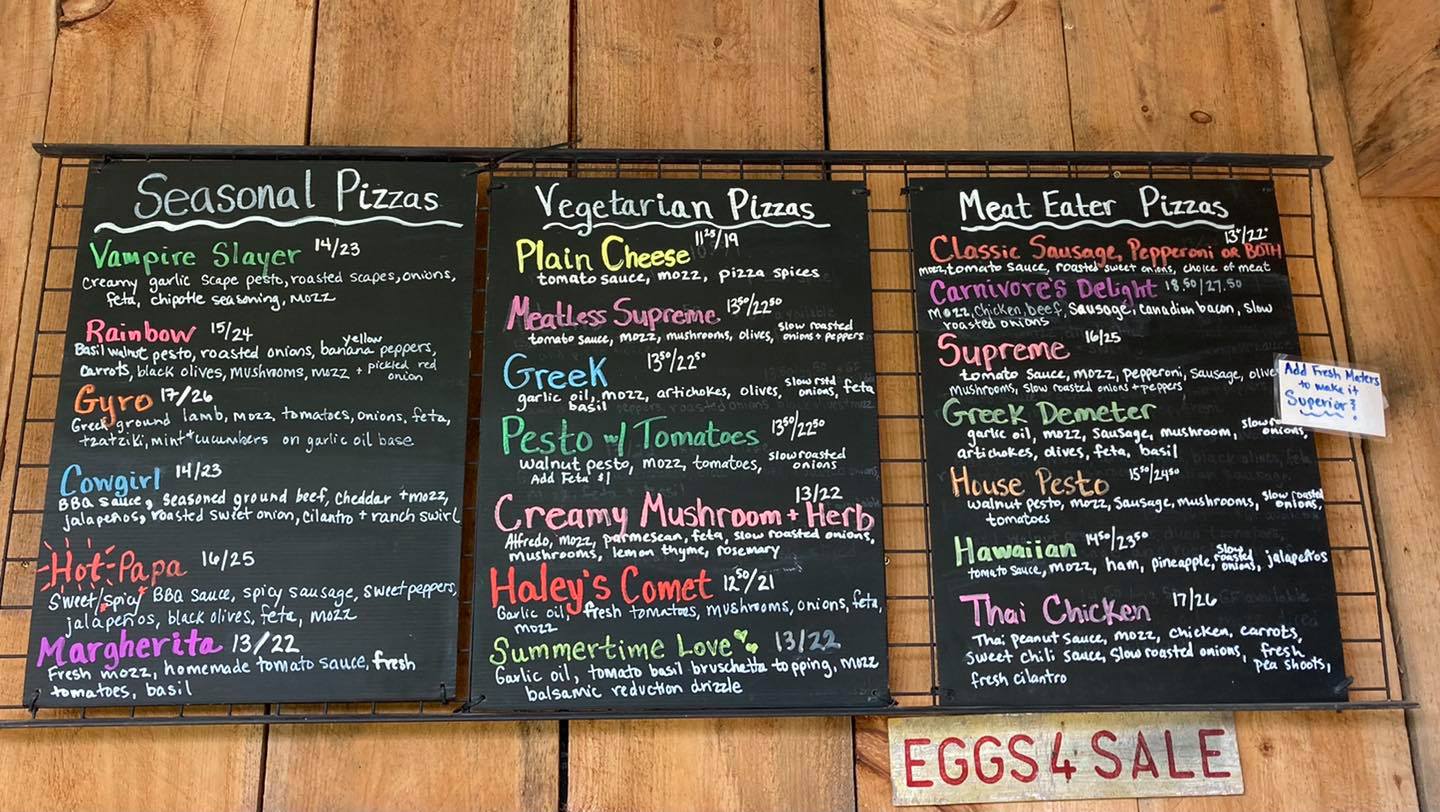 Seasonal Pizzas
Vampire Slayer 14/23
Creamy garlic scape pesto, roasted scapes, onions,
feta, chipotle seasoning, Mozz
Rainbow 15/24
yellow
Basil walnut pesto, roasted onions, banana peppers,
Carrots, black olives, Mushrooms, Mozz + pickled red
onion
Gyro 17/26
Greek ground lamb, mozz, tomatoes, onions, feta,
tzatziki, mint + cucumbers on garlic oil base
Cowgirl 14/23
BBQ sauce, seasoned ground beef, cheddar + mozz,
jalapeños, roasted sweet onion, cilantro + ranch swirl
Hot Papa 16/25
Sweet/spicy BBQ sauce, spicy sausage, sweet peppers,
jalapeños, black olives, feta, mozz
Margherita 13/22
Fresh mozz, homemade tomato sauce, fresh
tomatoes, basil
Vegetarian Pizzas
Plain Cheese 11²⁵/19
tomato sauce, mozz, pizza spices
Meatless Supreme 13⁵⁰/22⁵⁰
tomato sauce, mozz, mushrooms, olives, slow roasted
onions + peppers
Greek 13⁵⁰/22⁵⁰
garlic oil, mozz, artichokes, olives, slow rstd onions, feta
basil
Pesto w/ Tomatoes 13⁵⁰/22⁵⁰
walnut pesto, mozz, tomatoes, slow roasted
onions
Add Feta $1
Creamy Mushroom + Herb 13/22
Alfredo, mozz, parmesean, feta, slow roasted onions,
mushrooms, lemon thyme, rosemary
Haley's Comet 12⁵⁰/21
Garlic oil, fresh tomatoes, mushrooms, onions, feta,
mozz
Summertime Love 13/22
Garlic oil, tomato basil bruschetta topping, mozz
balsamic reduction drizzle
Meat Eater Pizzas
Classic Sausage, Pepperoni or BOTH
mozz, tomato sauce, roasted sweet onions, choice of meat
Carnivore's Delight 18.50/27.50
Mozz, Chicken, beef, Sausage, canadian bacon, slow
roasted onions
Supreme 16/25
tomato sauce, mozz, pepperoni, sausage, olive
mushrooms, slow roasted onions + peppers
Greek Demeter
garlic oil, mozz, sausage, mushroom, onions,
artichokes, olives, feta, basil
House Pesto 15⁵⁰/24⁵⁰
walnut pesto, mozz, sausage, mushrooms, slow roasted onions,
tomatoes
Hawaiian 14⁵⁰/23⁵⁰
tomato sauce, mozz, ham, pineapple, slow roasted onions, jalapeños
Thai Chicken 17/26
Thai peanut sauce, mozz, chicken, carrots,
sweet chili sauce, slow roasted onions, fresh
pea shoots,
fresh cilantro
Add Fresh Maters
to make it
Superior!
EGGS 4 SALE